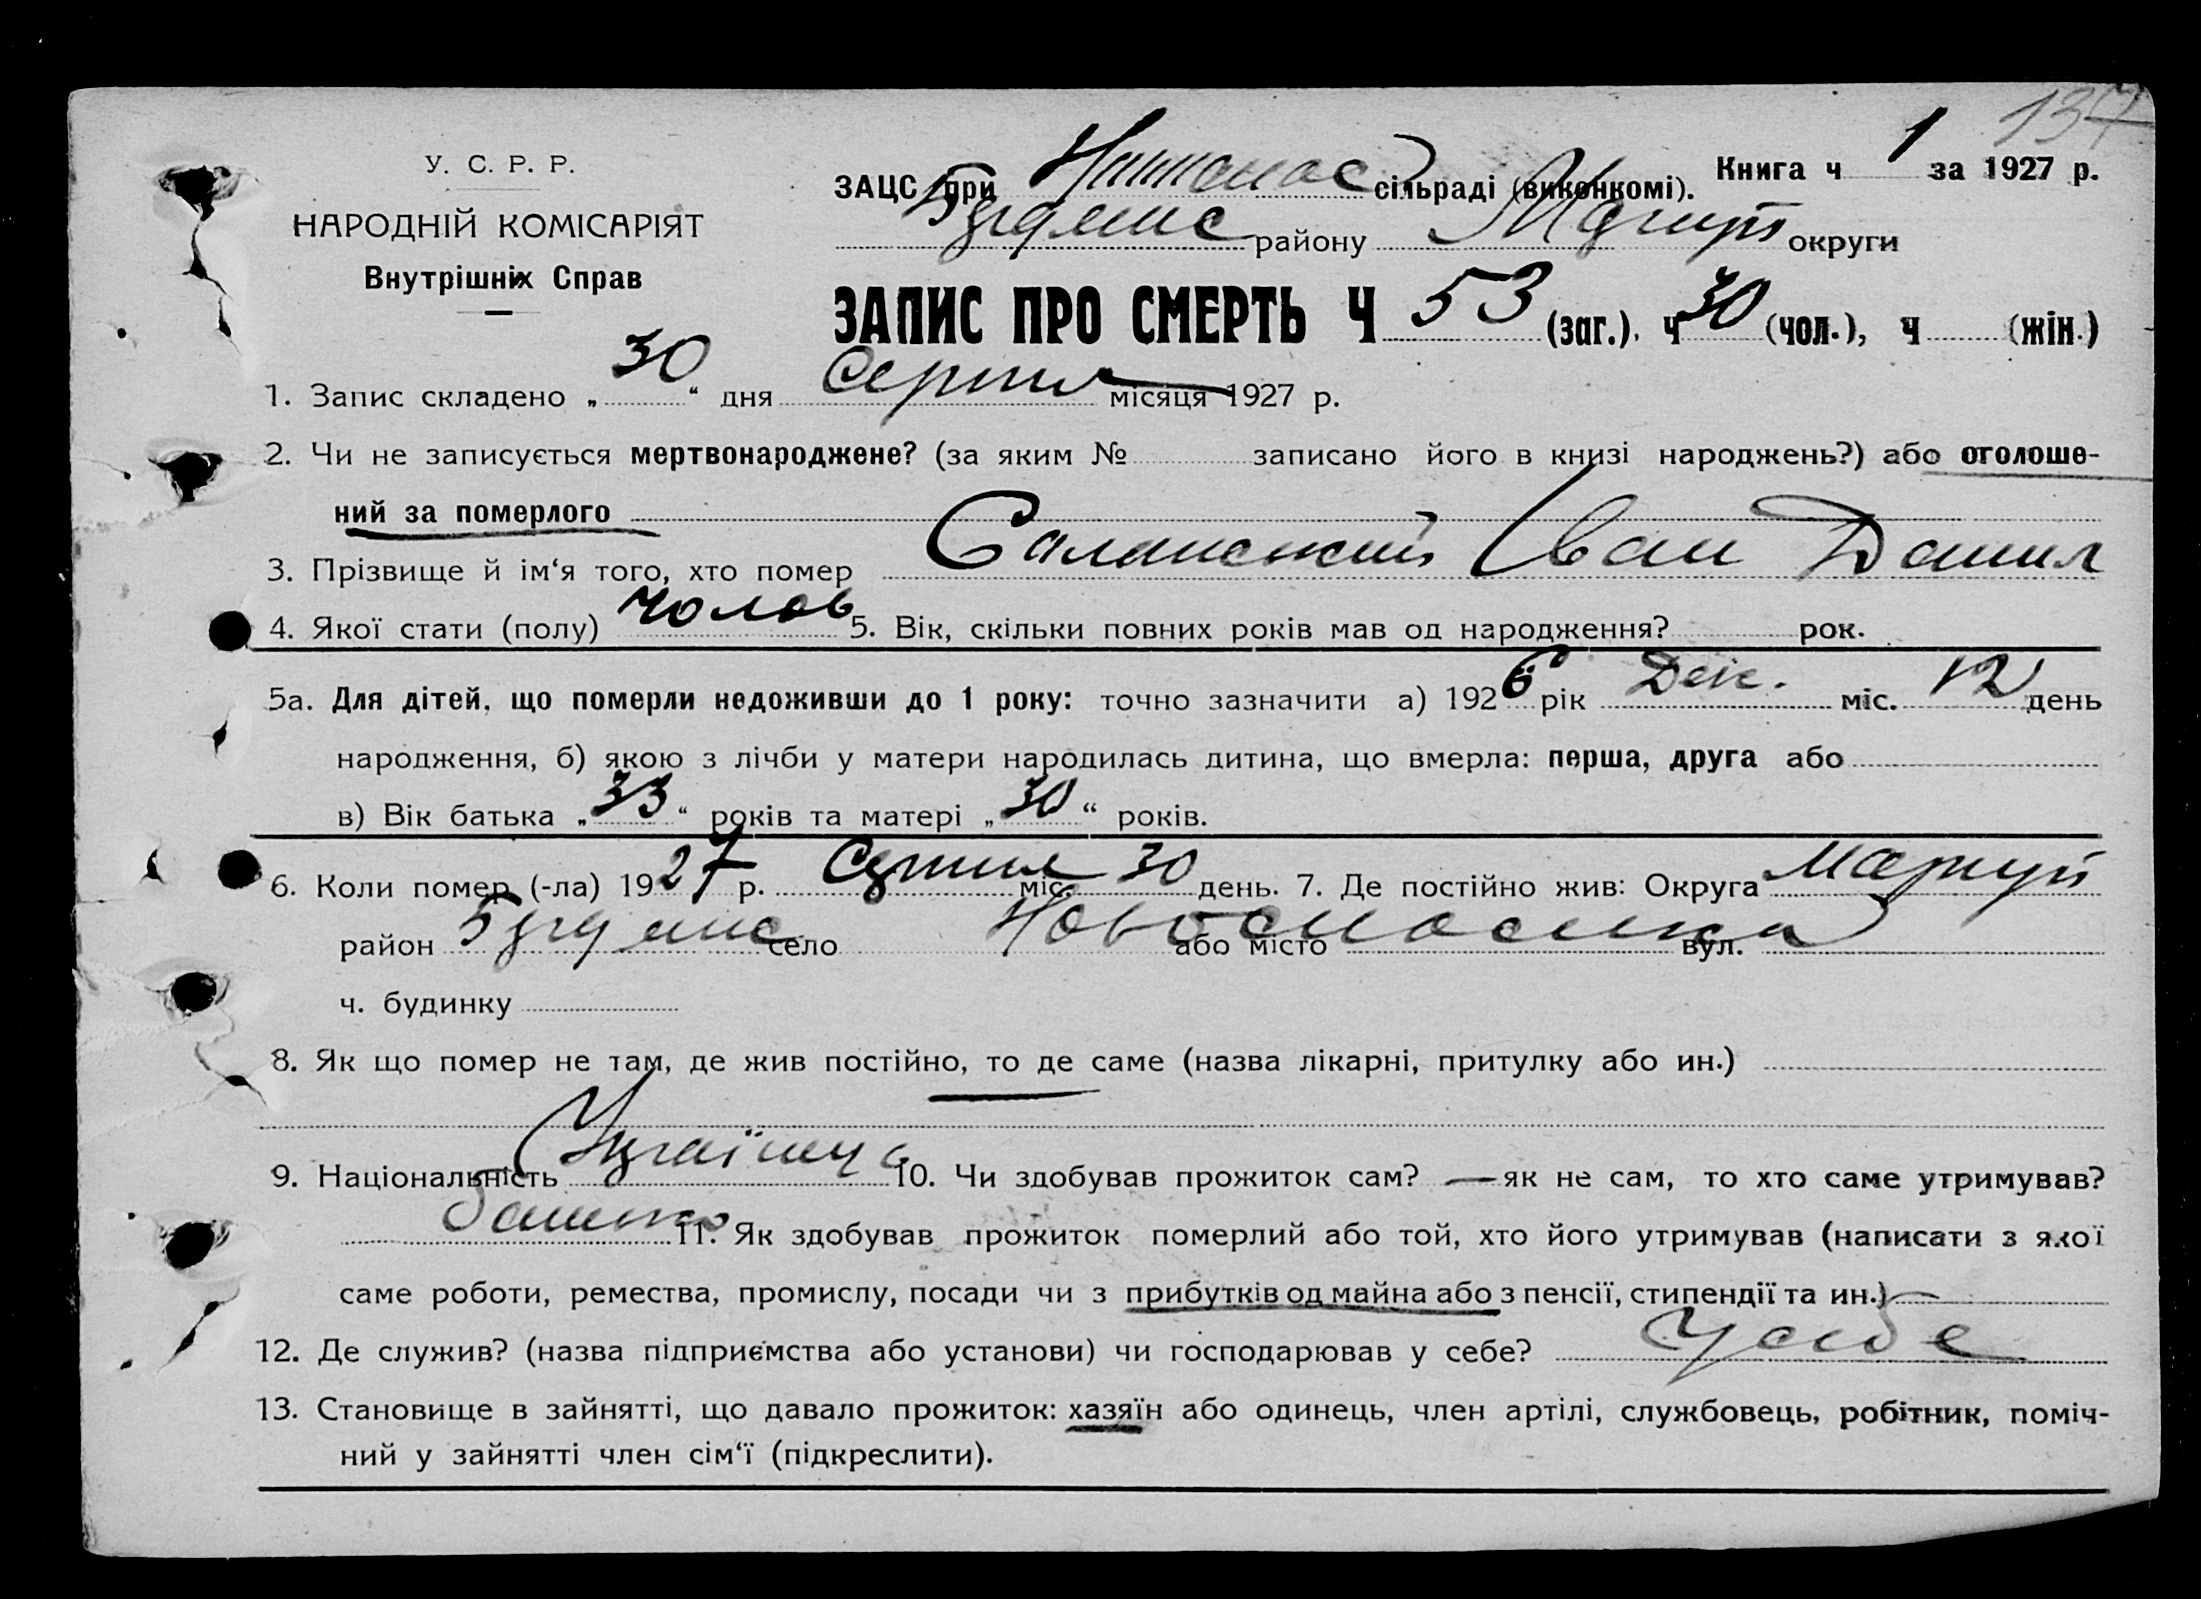 137
У. С. Р. Р.
НАРОДНІЙ КОМІСАРІЯТ
Внутрішніх Справ
Книга ч 1 за 1927 р.
ЗАЦС при сільраді (виконкомі).
району округи
ЗАПИС ПРО СМЕРТЬ Ч 53 (заг.), ч 30 (чол.), ч (жін.)
1. Запис складено „30“ дня Серпня місяця 1927 р.
2. Чи не записується мертвонароджене? (за яким № записано його в книзі народжень?) або оголоше-
ний за померлого
3. Прізвище й ім‘я того, хто помер Саланский Іван Данил
4. Якої стати (полу) чолов 5. Вік, скільки повних років мав од народження? рок.
5а. Для дітей, що померли недоживши до 1 року: точно зазначити а) 1926 рік Дек. міс. 12 день
народження, б) якою з лічби у матери народилась дитина, що вмерла: перша, друга або
в) Вік батька „33“ років та матері „30“ років.
6. Коли помер (-ла) 1927 р. Серпня міс. 30 день. 7. Де постійно жив: Округа Маріуп
район село Новоспасівка або місто вул.
ч. будинку
8. Як що помер не там, де жив постійно, то де саме (назва лікарні, притулку або ин.)
9. Національність 10. Чи здобував прожиток сам? — як не сам, то хто саме утримував?
батько 11. Як здобував прожиток померлий або той, хто його утримував (написати з якої
саме роботи, ремества, промислу, посади чи з прибутків од майна або з пенсії, стипендії та ин.)
12. Де служив? (назва підприємства або установи) чи господарював у себе? У себе
13. Становище в зайнятті, що давало прожиток: хазяїн або одинець, член артілі, службовець, робітник, поміч-
ний у зайнятті член сім‘ї (підкреслити).